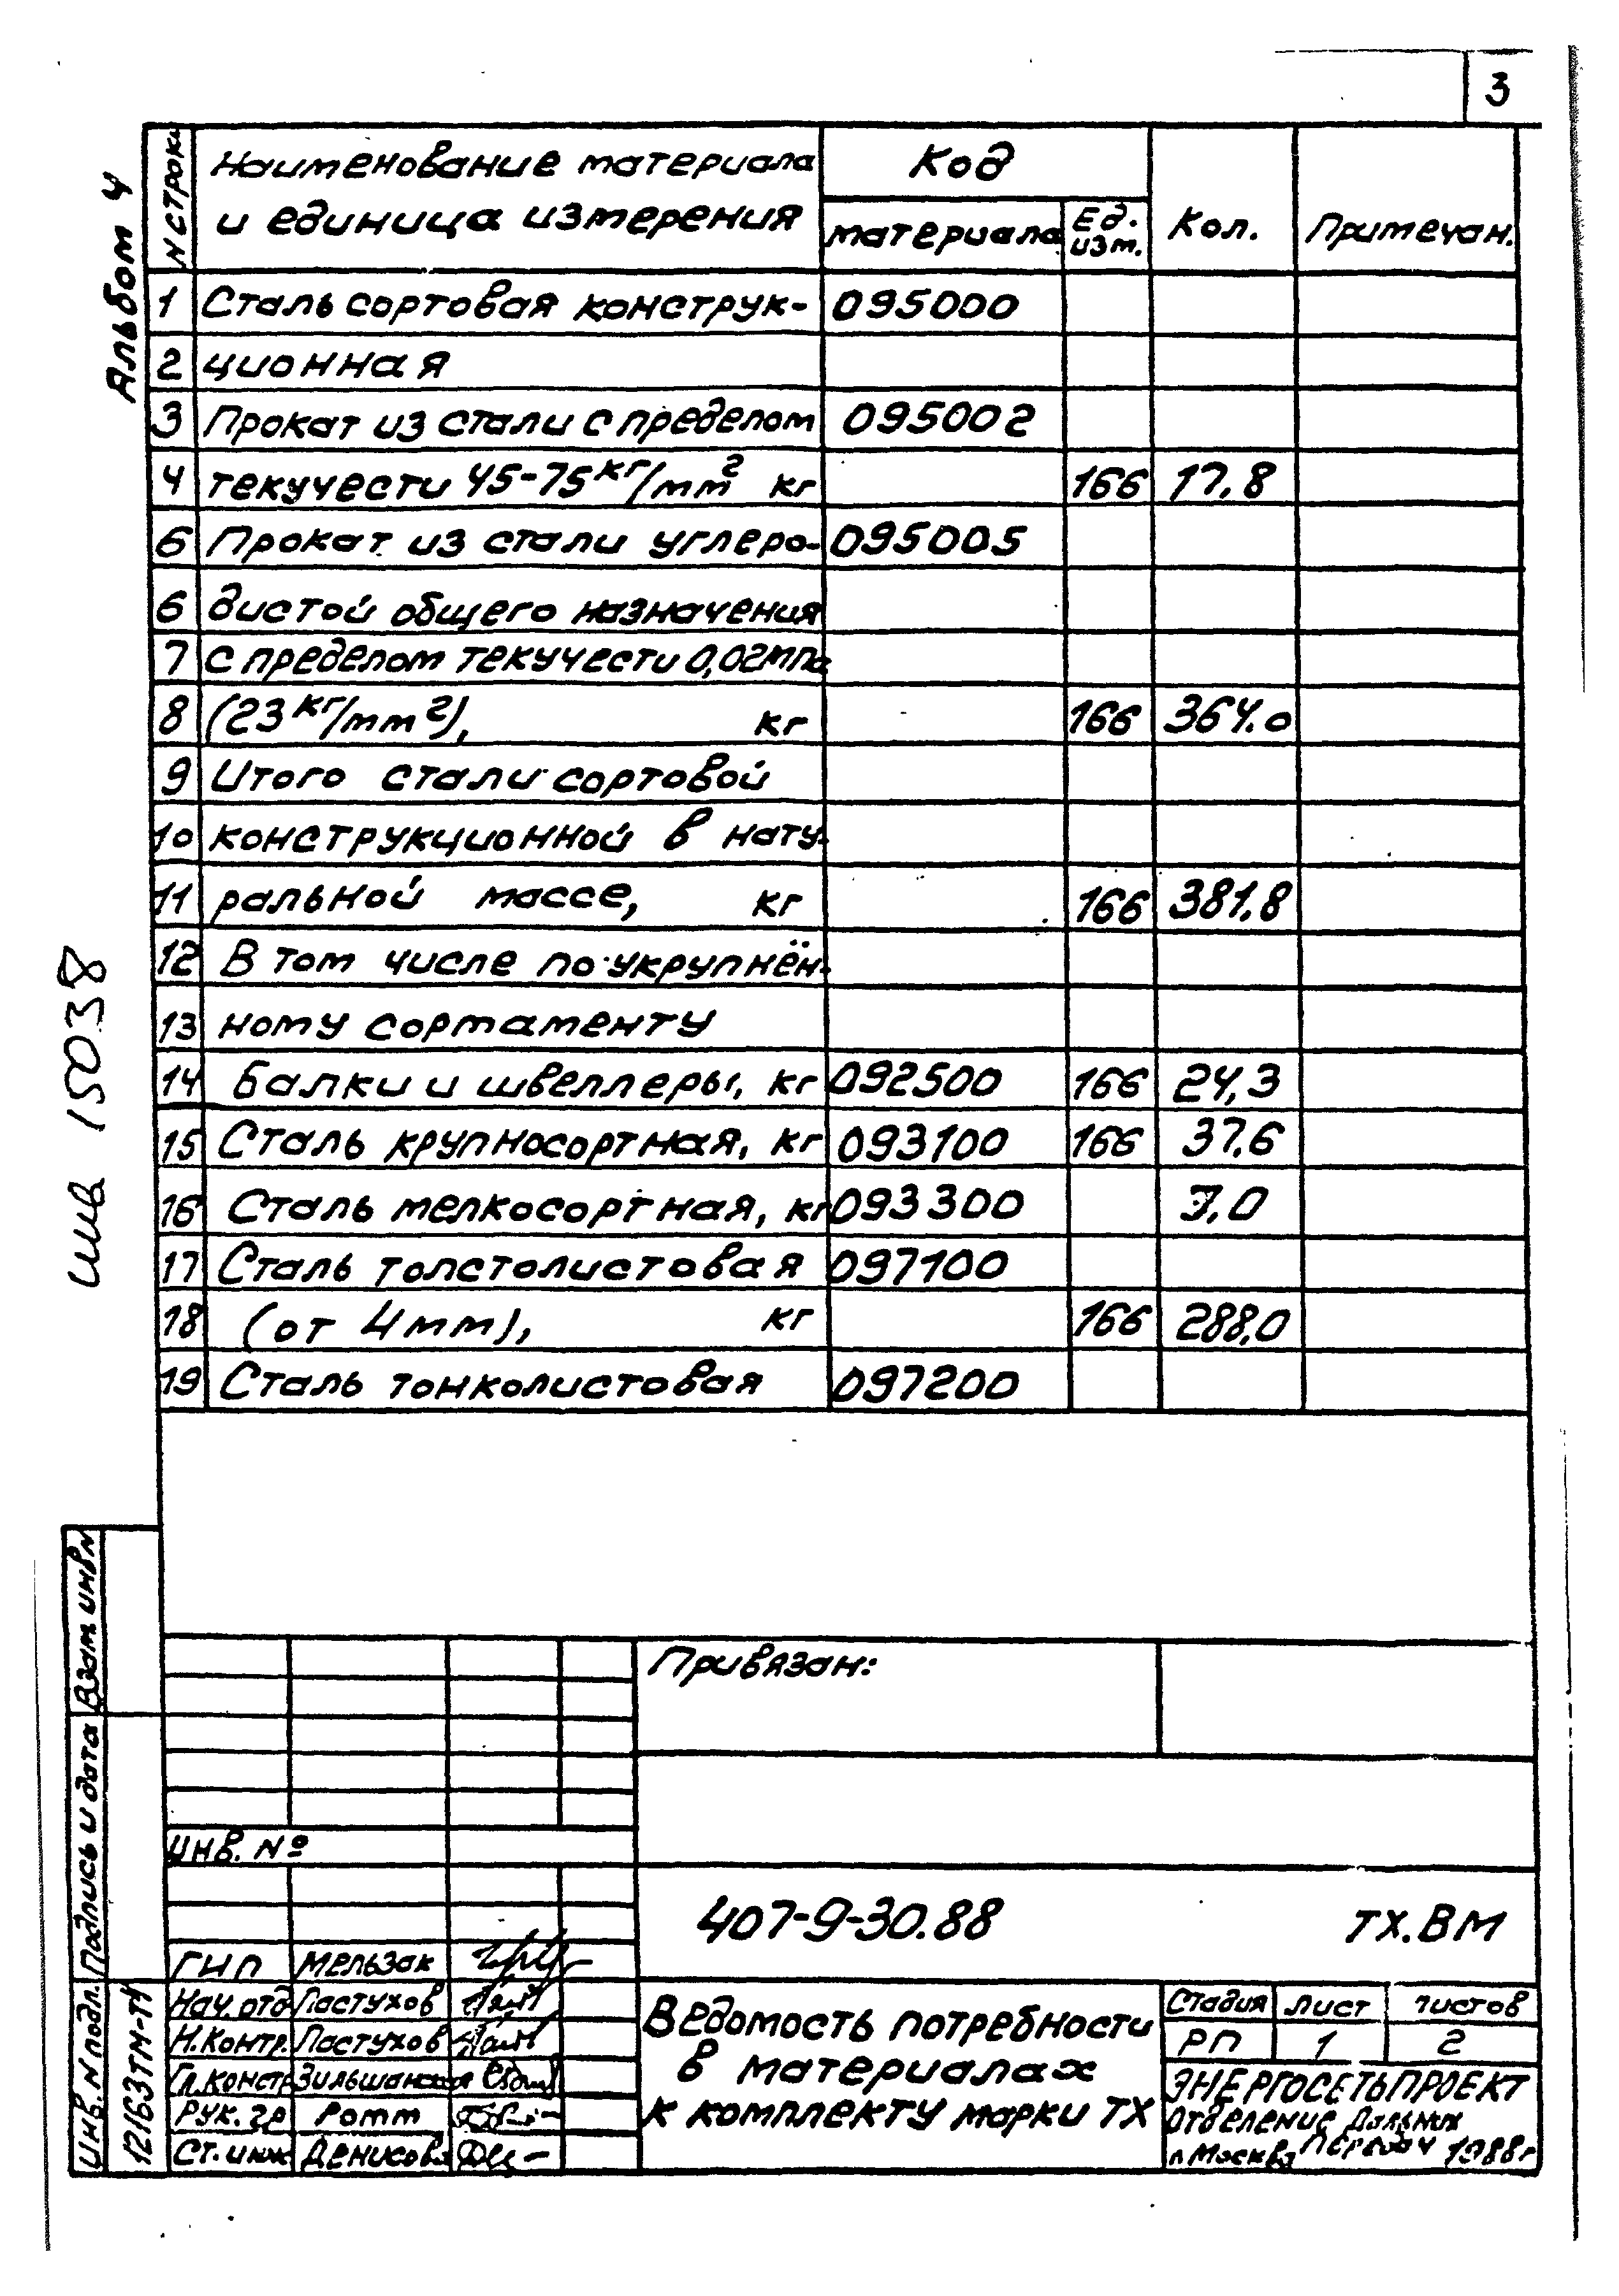 3
Альбом 4
N строки Наименование материала и единица измерения Код материала Ед. изм. Кол. Примечан.
1 Сталь сортовая конструк- 095000
2 ционная
3 Прокат из стали с пределом 095002
4 текучести 45-75 кг/мм² кг 166 17,8
6 Прокат из стали углеро- 095005
6 дистой общего назначения
7 с пределом текучести 0,02мпа
8 (23 кг/мм²), кг 166 364.0
9 Итого стали сортовой
10 конструкционной в нату-
11 ральной массе, кг 166 381,8
12 В том числе по укрупнён-
13 ному сортаменту
14 Балки и швеллеры, кг 092500 166 24,3
15 Сталь крупносортная, кг 093100 166 37,6
16 Сталь мелкосортная, кг 093300 7,0
17 Сталь толстолистовая 097100
18 (от 4мм), кг 166 288,0
19 Сталь тонколистовая 097200
инв 15038
Взам инв N
Подпись и дата
Инв. N подл.
12163тм-т4
Привязан:
Инв. №
407-9-30.88 ТХ.ВМ
ГИП Мельзак
Нач. отд Пастухов
Н.контр. Пастухов
Гл.констр Зильшанская
Рук. гр Ротт
Ст. инж Денисова
Ведомость потребности
в материалах
к комплекту марки ТХ
Стадия Лист Листов
РП 1 2
ЭНЕРГОСЕТЬПРОЕКТ
Отделение Дальних
Передач
г. Москва 1988г